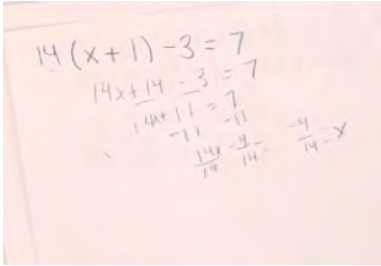 14(x+1)-3=7
14x+14-3=7
14x+11=7
-11 -11
14x/14 -4/14= -4/14=x